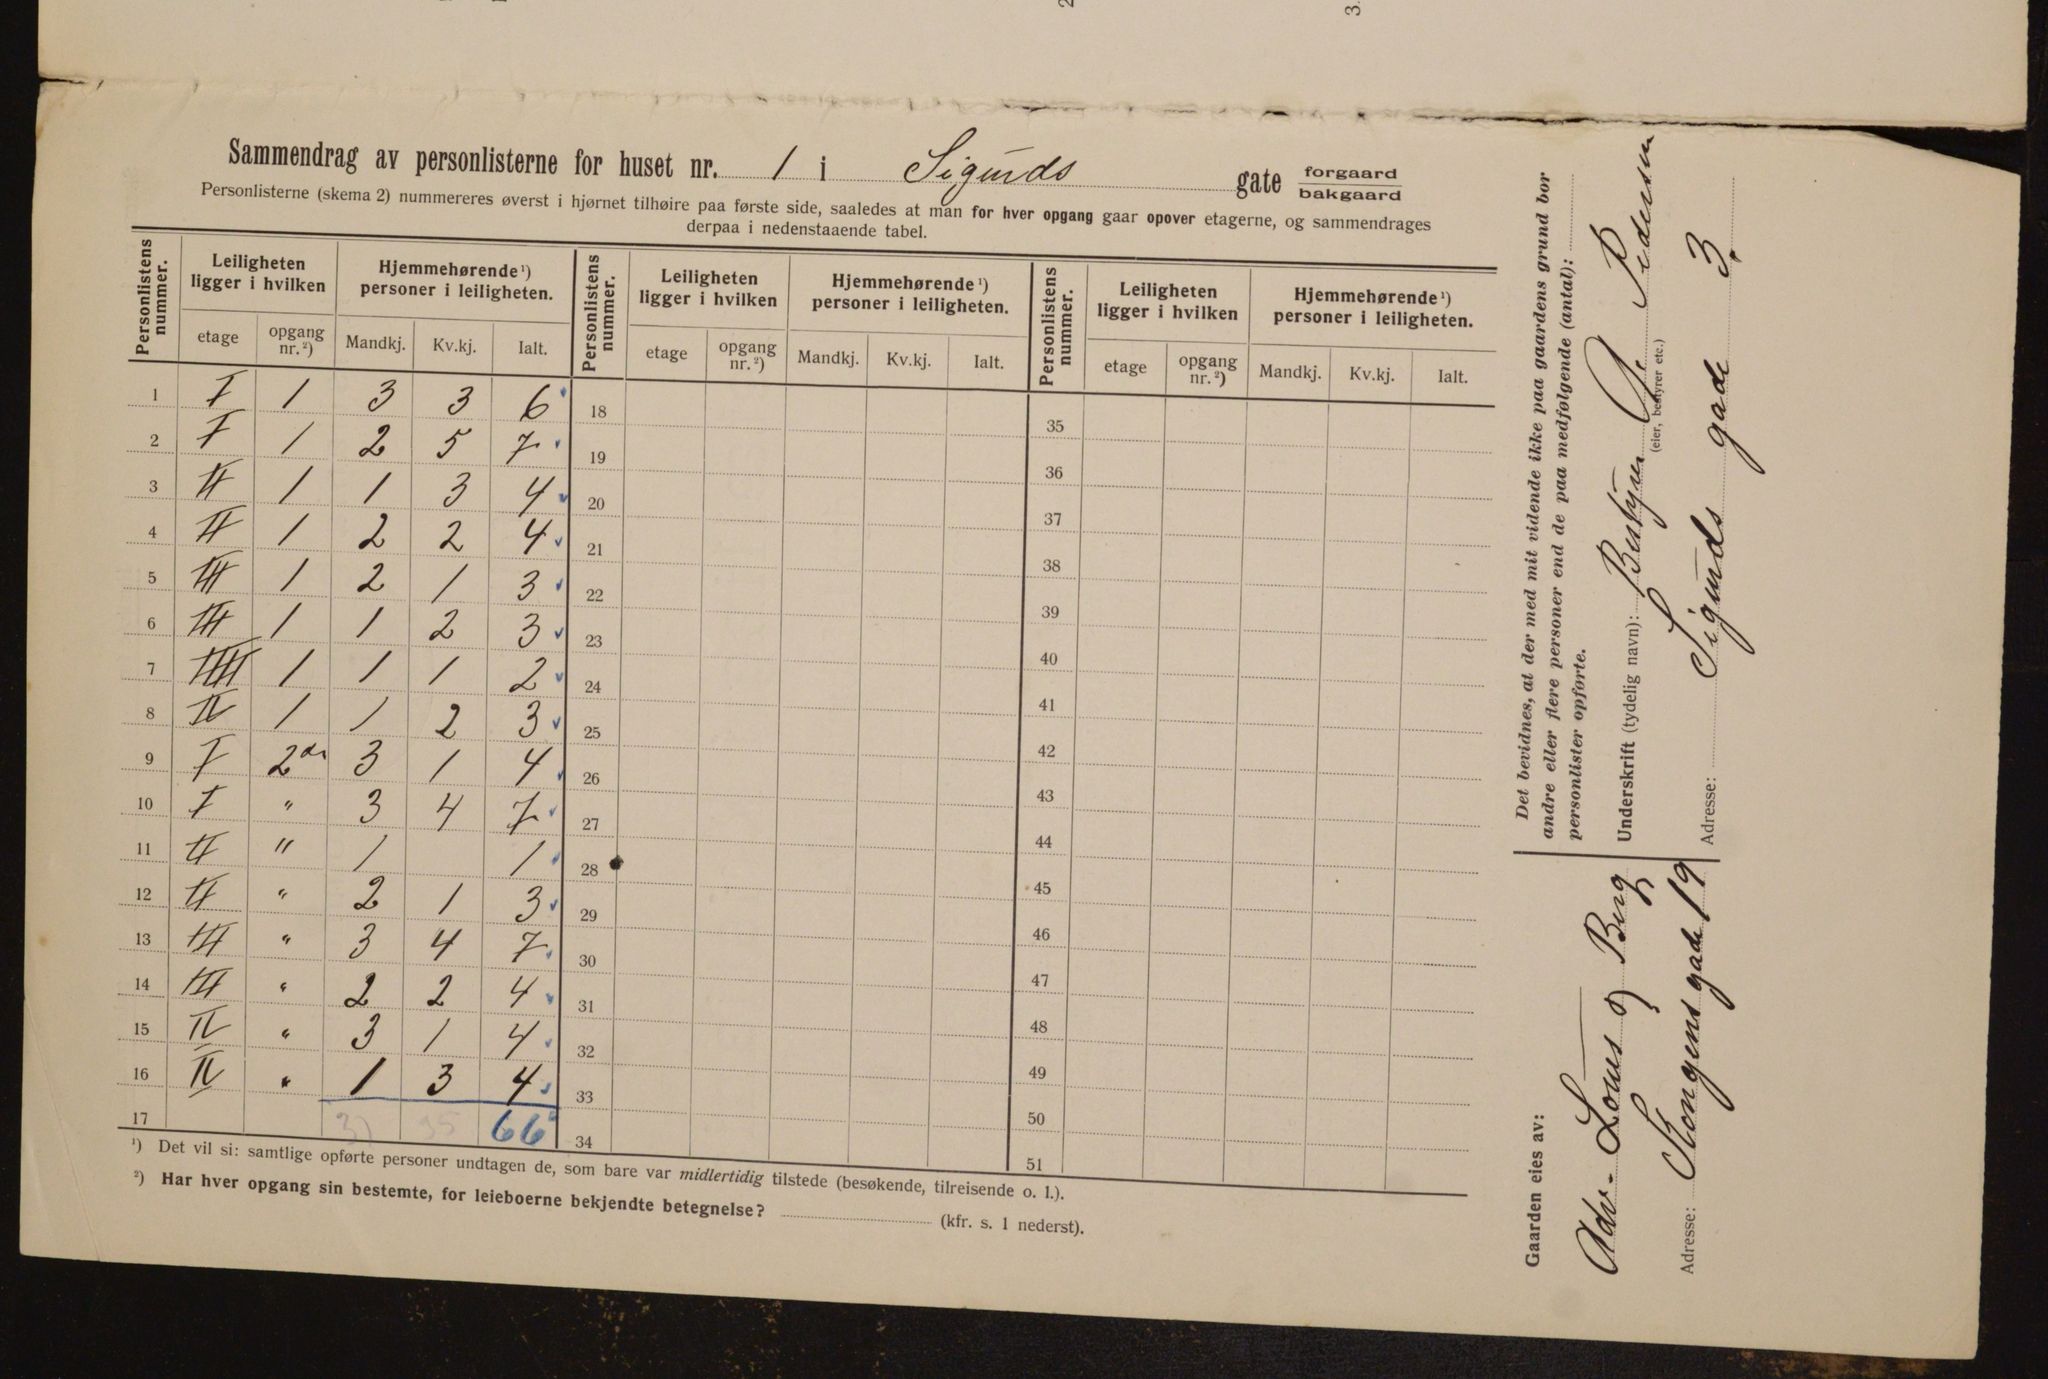 Sammendrag av personlisterne for huset nr. 1 i Sigurds gate forgaard bakgaard
Personlisterne (skema 2) nummereres øverst i hjørnet tilhøire paa første side, saaledes at man for hver opgang gaar opover etagerne, og sammendrages
derpaa i nedenstaaende tabel.
Personlistens nummer. Leiligheten ligger i hvilken Hjemmehørende¹) personer i leiligheten. Personlistens nummer. Leiligheten ligger i hvilken Hjemmehørende¹) personer i leiligheten. Personlistens nummer. Leiligheten ligger i hvilken Hjemmehørende¹) personer i leiligheten.
etage opgang nr.²) Mandkj. Kv.kj. Ialt. etage opgang nr.²) Mandkj. Kv.kj. Ialt. etage opgang nr.²) Mandkj. Kv.kj. Ialt.
1 I 1 3 3 6 18 35
2 I 1 2 5 7 19 36
3 II 1 1 3 4 20 37
4 II 1 2 2 4 21 38
5 III 1 2 1 3 22 39
6 III 1 1 2 3 23 40
7 IIII 1 1 1 2 24 41
8 IV 1 1 2 3 25 42
9 I 2den 3 1 4 26 43
10 I " 3 4 7 27 44
11 II " 1 1 28 45
12 II " 2 1 3 29 46
13 III " 3 4 7 30 47
14 III " 2 2 4 31 48
15 IV " 3 1 4 32 49
16 IV " 1 3 4 33 50
17 31 35 66 34 51
¹) Det vil si: samtlige opførte personer undtagen de, som bare var midlertidig tilstede (besøkende, tilreisende o. l.).
²) Har hver opgang sin bestemte, for leieboerne bekjendte betegnelse? (kfr. s. 1 nederst).
Det bevidnes, at der med mit vidende ikke paa gaardens grund bor
andre eller flere personer end de paa medfølgende (antal):
personlister opførte.
Underskrift (tydelig navn): Bestyrer Pedersen
(eier, bestyrer etc.)
Adresse: Sigurds gade 3.
Gaarden eies av:
Adv. Berg
Adresse: Kongens gade 19